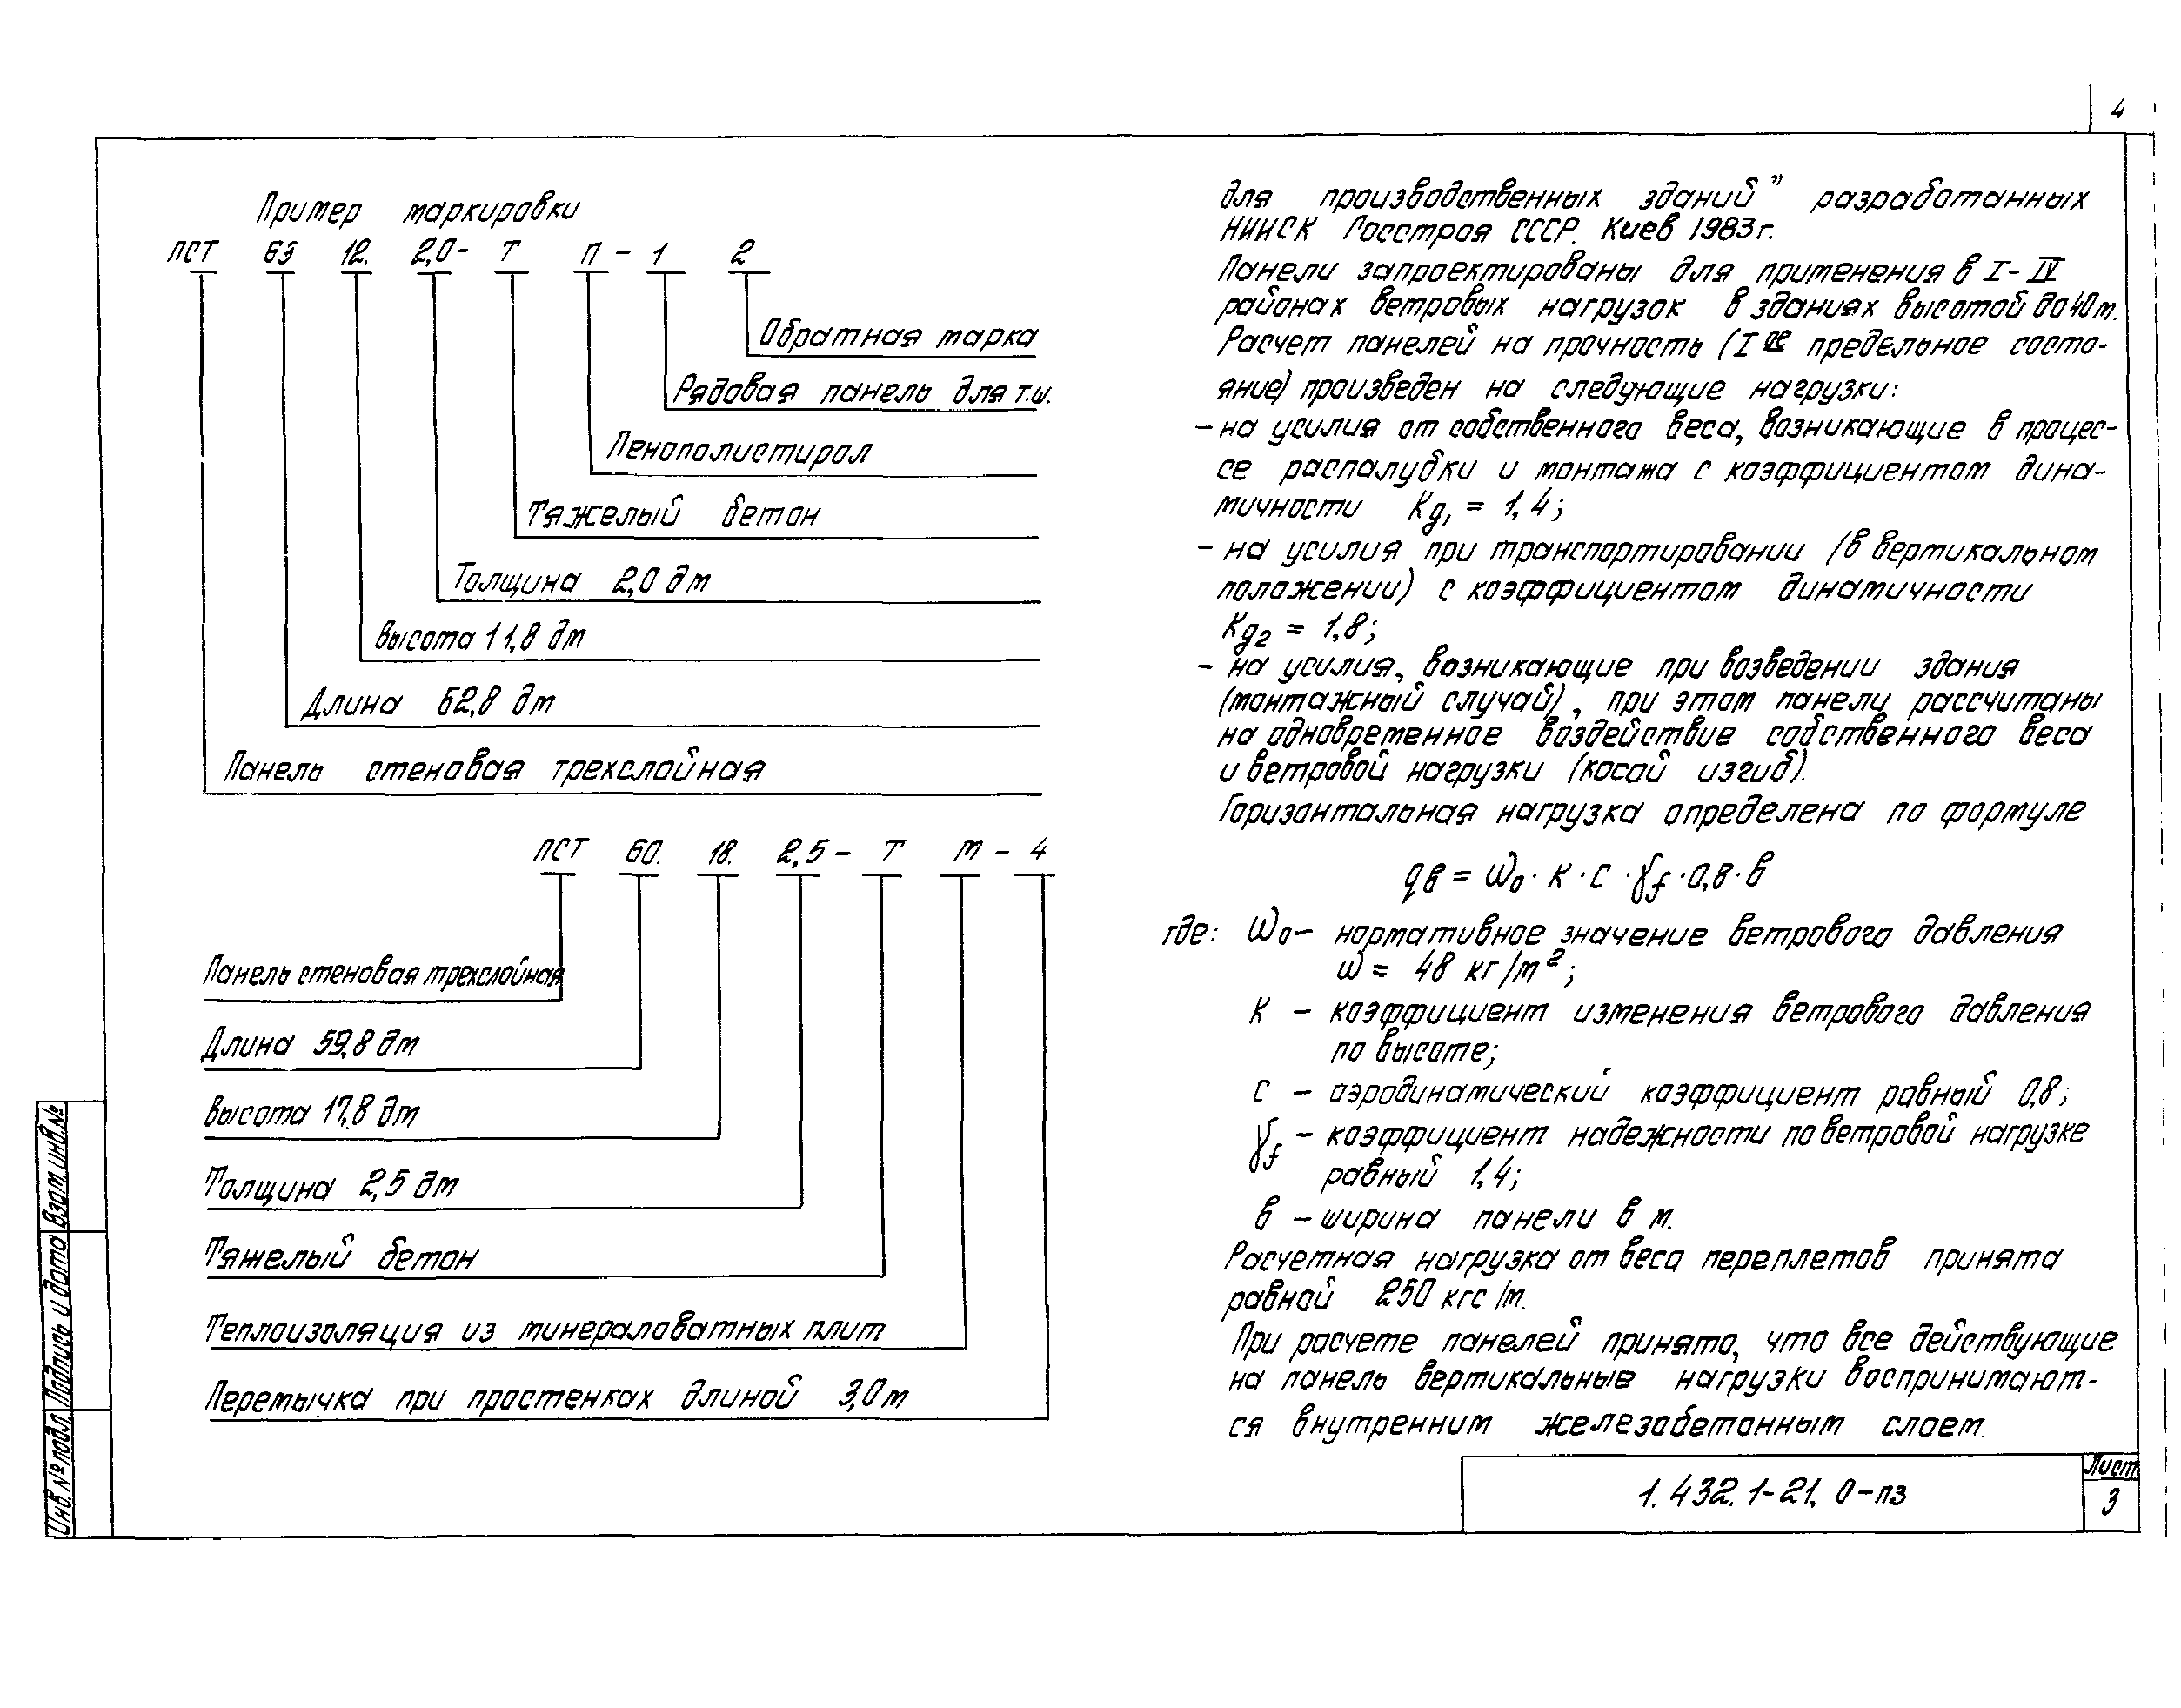 4
Пример маркировки
ПСТ 63 12. 2,0- Т П - 1 2
Обратная марка
Рядовая панель для т.ш.
Пенополистирол
Тяжелый бетон
Толщина 2,0 дм
Высота 11,8 дм
Длина 62,8 дм
Панель стеновая трехслойная
ПСТ 60. 18. 2,5- Т М - 4
Панель стеновая трехслойная
Длина 59,8 дм
Высота 17,8 дм
Толщина 2,5 дм
Тяжелый бетон
Теплоизоляция из минераловатных плит
Перемычка при простенках длиной 3,0 м
для производственных зданий" разработанных
НИИСК Госстроя СССР. Киев 1983г.
Панели запроектированы для применения в I-IV
районах ветровых нагрузок в зданиях высотой до 40 м.
Расчет панелей на прочность (I ое предельное состо-
яние) произведен на следующие нагрузки:
- на усилия от собственного веса, возникающие в процес-
се распалубки и монтажа с коэффициентом дина-
мичности Кд₁ = 1,4;
- на усилия при транспортировании (в вертикальном
положении) с коэффициентом динамичности
Кд₂ = 1,8;
- на усилия, возникающие при возведении здания
(монтажный случай), при этом панели рассчитаны
на одновременное воздействие собственного веса
и ветровой нагрузки (косой изгиб).
Горизонтальная нагрузка определена по формуле
qв = ω₀ · к · с · γf · 0,8 · в
где: ω₀ - нормативное значение ветрового давления
ω = 48 кг/м²;
К - коэффициент изменения ветрового давления
по высоте;
с - аэродинамический коэффициент равный 0,8;
γf - коэффициент надежности по ветровой нагрузке
равный 1,4;
в - ширина панели в м.
Расчетная нагрузка от веса переплетов принята
равной 250 кгс/м.
При расчете панелей принято, что все действующие
на панель вертикальные нагрузки воспринимают-
ся внутренним железобетонным слоем.
Взам. инв.№
Подпись и дата
Инв.№ подл.
1.432.1-21. 0-ПЗ
Лист
3